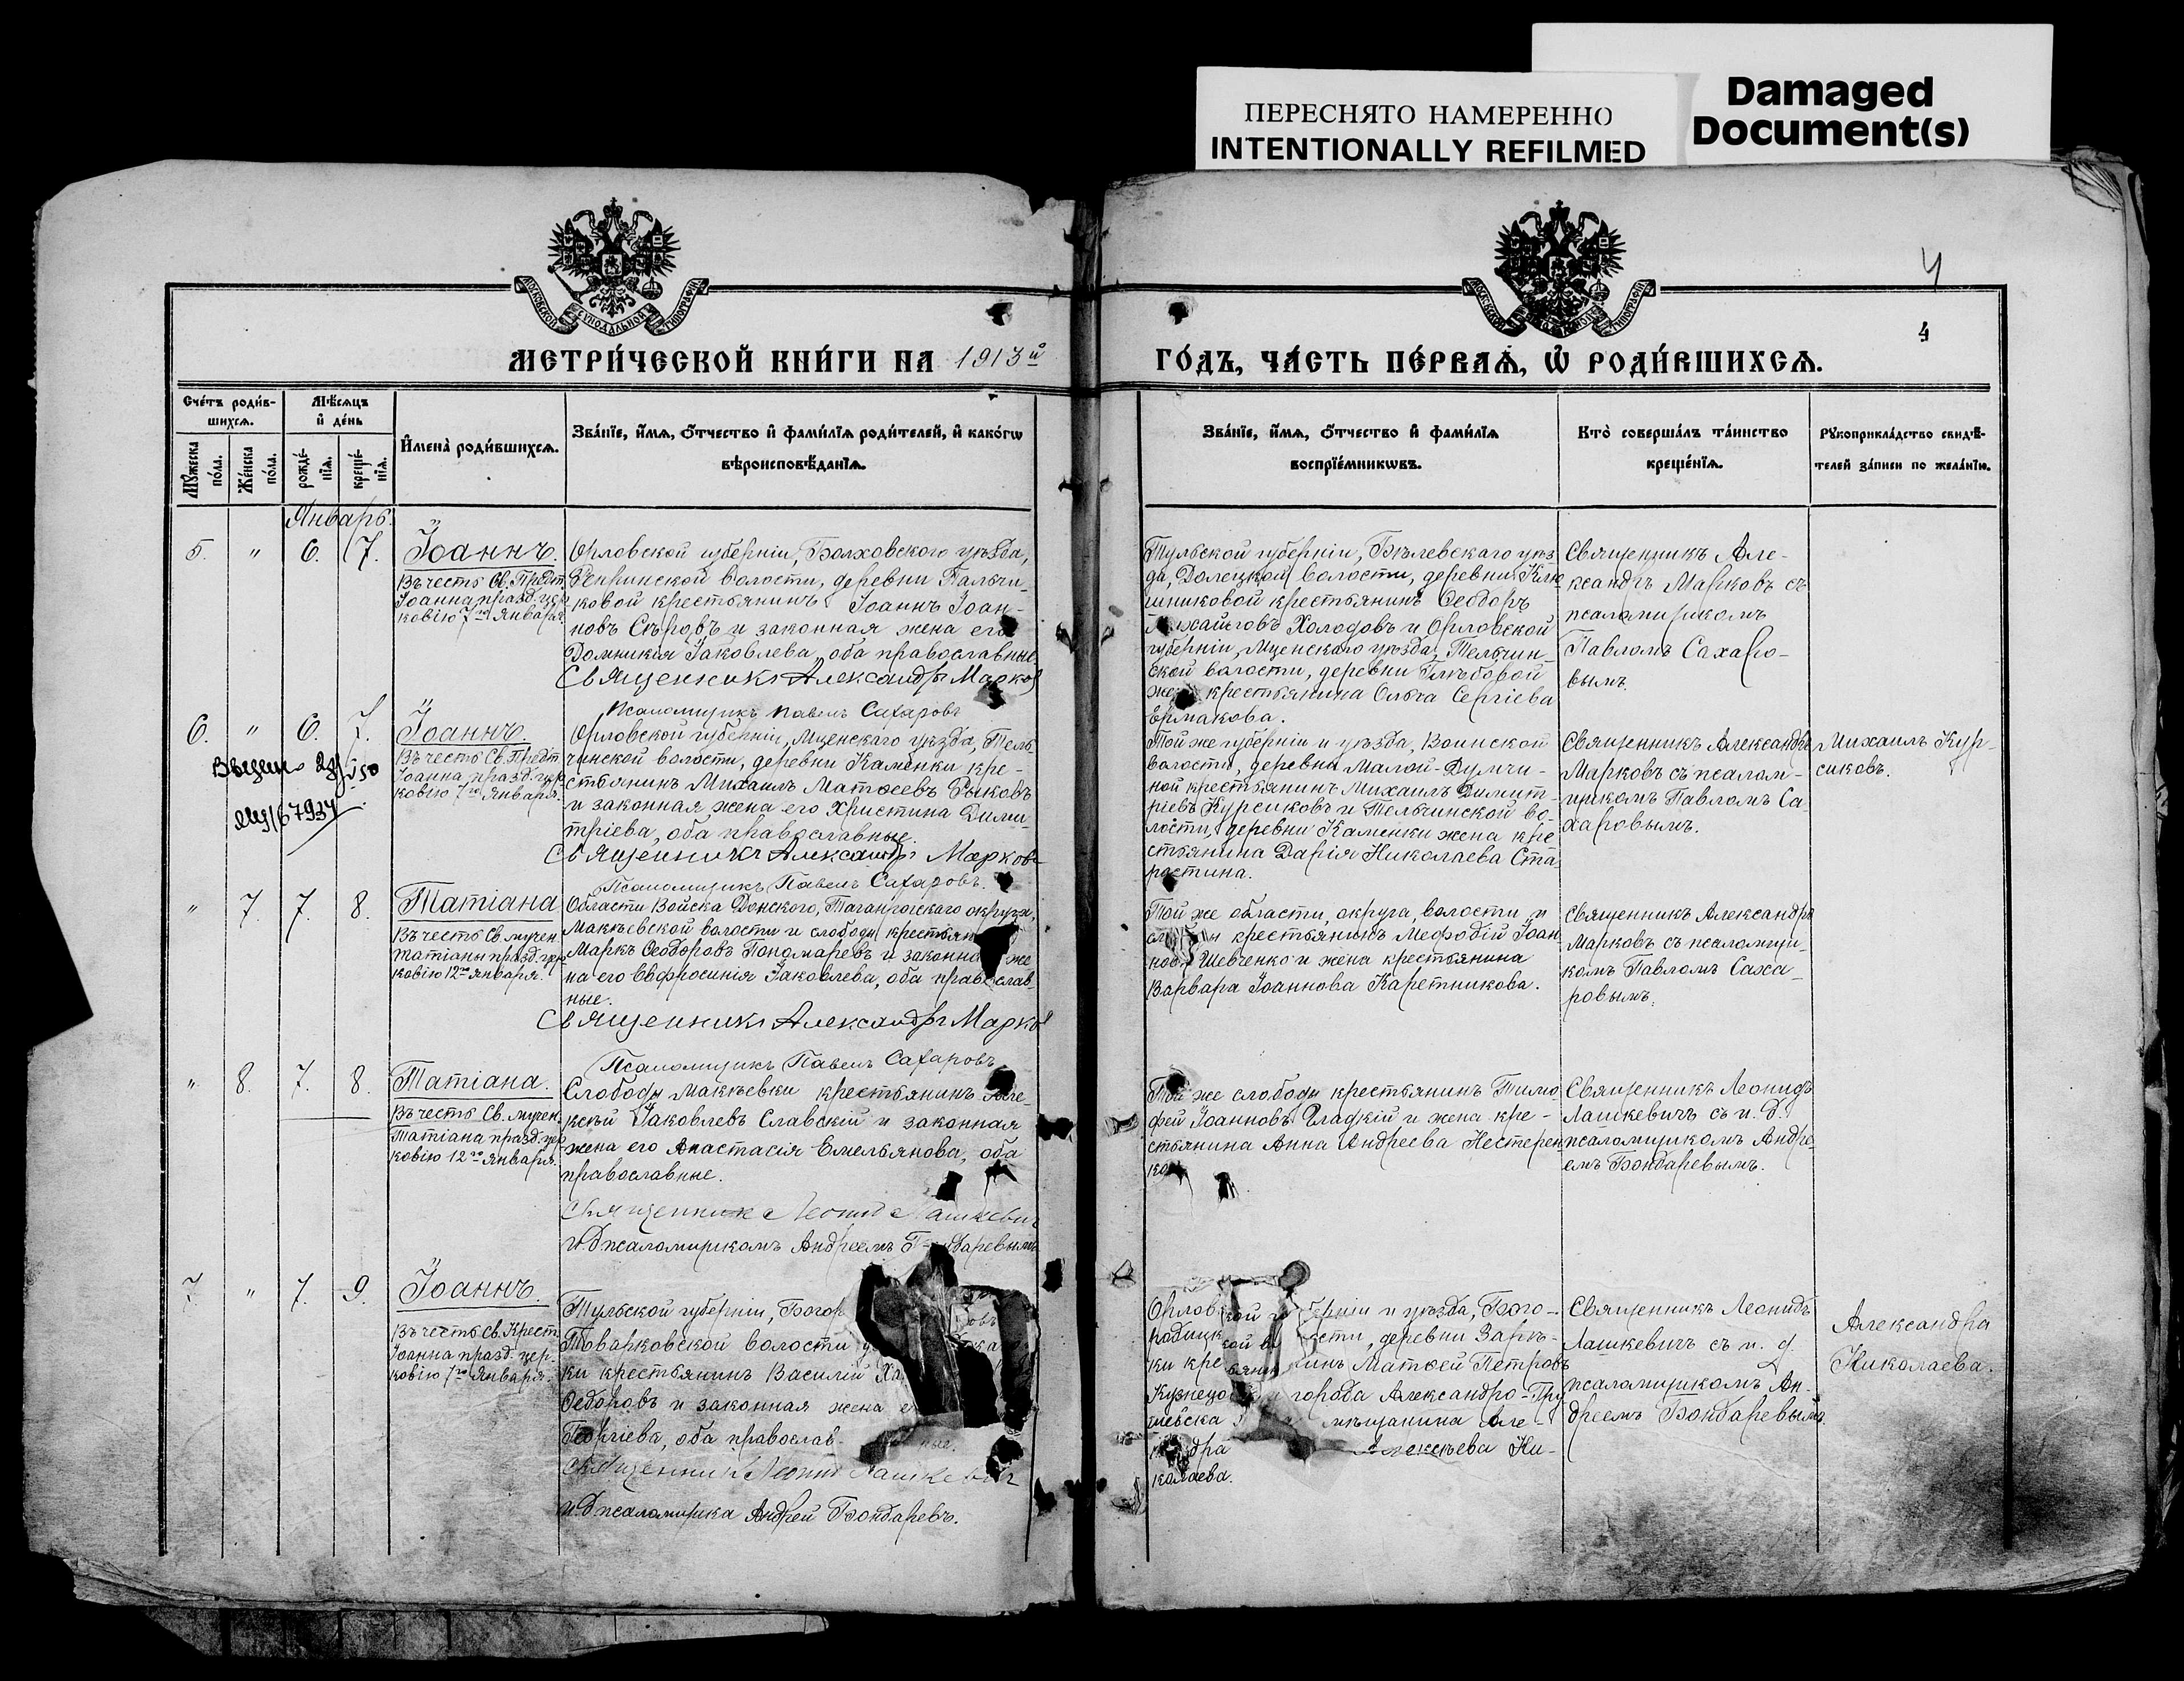 Damaged
Document(s)
ПЕРЕСНЯТО НАМЕРЕННО
INTENTIONALLY REFILMED
МОСКОВСКОЙ СѴНОДАЛЬНОЙ ТИПОГРАФІИ
4
4
МЕТРИ́ЧЕСКОЙ КНИ́ГИ НА 1913й
ГО́ДЪ, ЧА́СТЬ ПЕ́РВАѦ, Ѡ҆ РОДИ́ВШИХСѦ.
Сче́тъ роди́в-
шихсѧ.
Мѣ́сѧцъ
и҆ де́нь
Мꙋ́жеска по́ла.
Же́нска по́ла.
рожде́-нїѧ.
креще́-нїѧ.
И҆мена̀ роди́вшихсѧ.
Зва́нїе, и҆́мѧ, ѻ҆́тчество и҆ фами́лїѧ роди́телей, и҆ како́гѡ
вѣроисповѣ́данїѧ.
Зва́нїе, и҆́мѧ, ѻ҆́тчество и҆ фами́лїѧ
воспрїе́мникѡвъ.
Кто̀ соверша́лъ та́инство
креще́нїѧ.
Рꙋкоприкла́дство свидѣ́-
телей за́писи по жела́нїю.
Январь.
5. " 6. 7. Іоаннъ.
Въ честь Св. Предт.
Іоанна, празд. цер-
ковію 7го Января.
Орловской губерніи, Болховского уѣзда,
волости, деревни Пальчи-
ковой крестьянинъ Іоаннъ Іоан-
новъ Сѣровъ и законная жена его
Домникія Іаковлева, оба православные
Священникъ Александръ Марков
Псаломщикъ Павелъ Сахаровъ
Тульской губерніи, Бѣлевскаго уѣз-
да, Долецкой волости, деревни
крестьянинъ Ѳеодоръ
Холодовъ и Орловской
губерніи, Мценскаго уѣзда, Тельчин-
ской волости, деревни Глѣбовой
крестьянина Ольга Сергіева
Ермакова.
Священникъ Але-
ксандръ Марковъ съ
псаломщикомъ
Павломъ Сахаро-
вымъ.
6. " 6. 7. Іоаннъ.
Въ честь Св. Предт.
Іоанна, празд. цер-
ковію 7го Января.
Орловской губерніи, Мценскаго уѣзда, Тель-
чинской волости, деревни Каменки кре-
стьянинъ Михаилъ Матѳеевъ Быковъ
и законная жена его Христина Дими-
тріева, оба православные.
Священникъ Александръ Марковъ
Псаломщикъ Павелъ Сахаровъ.
Той же губерніи и уѣзда, Воинской
волости, деревни Малой-Думчи-
ной крестьянинъ Михаилъ Димит-
ріевъ Курсиковъ и Тельчинской во-
лости, деревни Каменки жена кре-
стьянина Дарія Николаева Ста-
ростина.
Священникъ Александръ
Марковъ съ псалом-
щикомъ Павломъ Са-
харовымъ.
Михаилъ Кур-
сиковъ.
" 7. 7. 8. Татіана
Въ честь Св. мучен.
Татіаны празд. цер-
ковію 12го января.
Области Войска Донского, Таганрогскаго округа,
Макѣевской волости и слободы крестьян
Маркъ Ѳеодоровъ Пономаревъ и законная же-
на его Евфросинія Іаковлева, оба православ-
ные.
Священникъ Александръ Марков
Псаломщикъ Павелъ Сахаровъ
Той же области, округа, волости и
крестьянинъ Меѳодій Іоан-
новъ Шевченко и жена крестьянина
Варвара Іоаннова Каретникова.
Священникъ Александръ
Марковъ съ псаломщи-
комъ Павломъ Саха-
ровымъ.
" 8. 7. 8. Татіана.
Въ честь Св. мучен.
Татіана празд. цер-
ковію 12го Января.
Слободы Макѣевки крестьянинъ Але-
ксѣй Іаковлевъ Славскій и законная
жена его Анастасія Емельянова, оба
православные.
Священникъ Леонидъ Лашкевич
и.д псаломщикомъ Андреемъ Бондаревымъ
Той же слободы крестьянинъ Тимо-
фей Іоанновъ Гладкій и жена кре-
стьянина Анна Андреева Нестерен-
ко
Священникъ Леонидъ
Лашкевичъ съ и. д.
псаломщикомъ Андре-
емъ Бондаревымъ.
7. " 7. 9. Іоаннъ.
Въ честь Св. Крест.
Іоанна празд. цер-
ковію 7го Января.
Тульской губерніи, Богор
Товарковской волости
ки крестьянинъ Василій
Ѳедоровъ и законная жена
Георгіева, оба православ-ные.
Священникъ Леонидъ Лашкевич
и.д псаломщика Андрей Бондаревъ.
Орловской губерніи и уѣзда, Бого-
родицкой волости, деревни Зарѣ-
ки крестьянинъ Матѳей Петровъ
Кузнецовъ и города Александро-Гру-
шевска мѣщанина Але-
ксандра Алексѣева Ни-
колаева.
Священникъ Леонидъ
Лашкевичъ съ и. д.
псаломщикомъ Ан-
дреемъ Бондаревымъ.
Александра
Николаева.